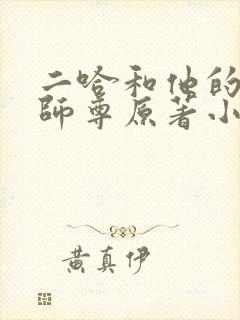 二哈和他的
師尊原著小
黄真伊